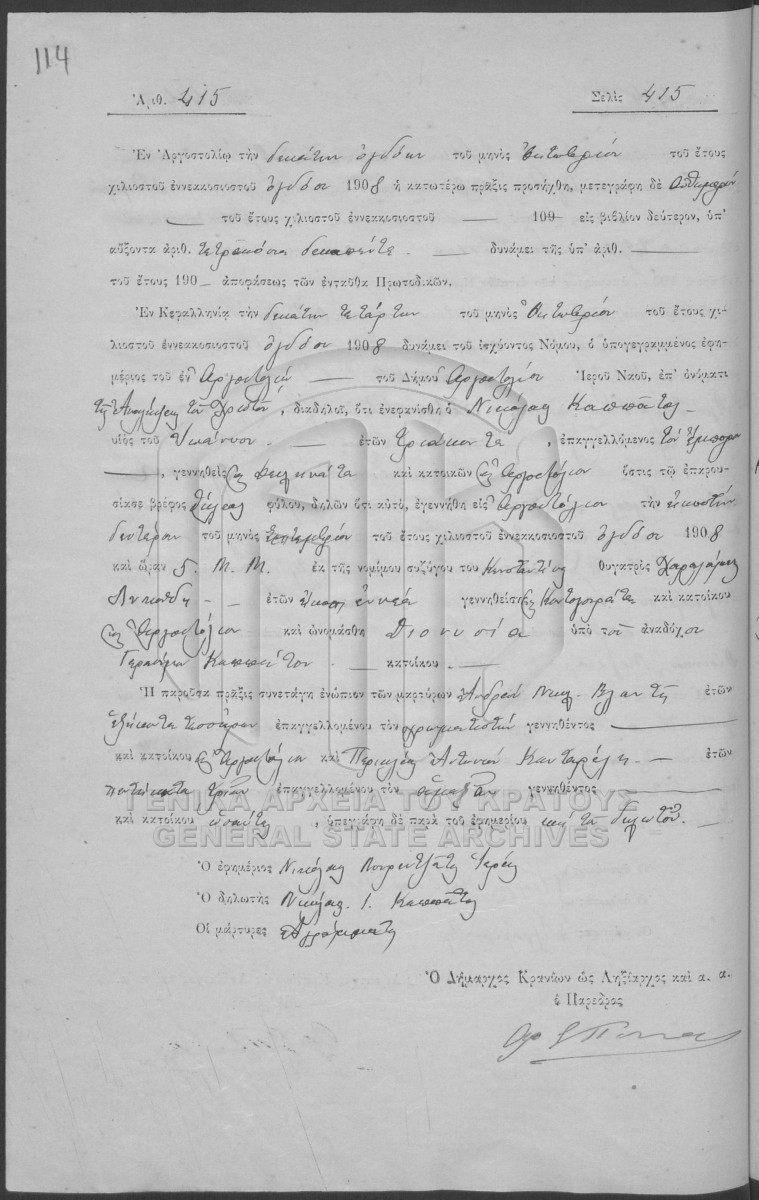 114
Ἀριθ. 415 Σελὶς 415
Ἐν Ἀργοστολίῳ τὴν δεκάτην ὀγδόην τοῦ μηνὸς Ὀκτωβρίου τοῦ ἔτους
χιλιοστοῦ ἐννεακοσιοστοῦ ὀγδόου 1908 ἡ κατωτέρω πρᾶξις προσήχθη, μετεγράφη δὲ αὐθημερόν
— τοῦ ἔτους χιλιοστοῦ ἐννεακοσιοστοῦ — 190– εἰς βιβλίον δεύτερον, ὑπ'
αὔξοντα ἀριθ. τετρακόσια δεκαπέντε. — δυνάμει τῆς ὑπ' ἀριθ. —
τοῦ ἔτους 190– ἀποφάσεως τῶν ἐνταῦθα Πρωτοδικῶν.
Ἐν Κεφαλληνίᾳ τὴν δεκάτην τετάρτην τοῦ μηνὸς Ὀκτωβρίου τοῦ ἔτους χι-
λιοστοῦ ἐννεακοσιοστοῦ ὀγδόου 1908 δυνάμει τοῦ ἰσχύοντος Νόμου, ὁ ὑπογεγραμμένος ἐφη-
μέριος τοῦ ἐν Ἀργοστολίῳ — τοῦ Δήμου Ἀργοστολίου Ἱεροῦ Ναοῦ, ἐπ' ὀνόματι
τῆς Ἀναλήψεως τοῦ Χριστοῦ, διαδηλοῖ, ὅτι ἐνεφανίσθη ὁ Νικόλαος Καππάτος
υἱὸς τοῦ Ἰωάννου. — ἐτῶν τριάκοντα, ἐπαγγελλόμενος τὸν ἔμπορον
—, γεννηθεὶς εἰς καὶ κατοικῶν εἰς Ἀργοστόλιον ὅστις τῷ ἐπαρου-
σίασε βρέφος θήλεος φύλου, δηλῶν ὅτι αὐτὸ, ἐγεννήθη εἰς Ἀργοστόλιον τὴν εἰκοστὴν
δευτέραν τοῦ μηνὸς Σεπτεμβρίου τοῦ ἔτους χιλιοστοῦ ἐννεακοσιοστοῦ ὀγδόου 1908
καὶ ὥραν 5. Μ. Μ. ἐκ τῆς νομίμου συζύγου του Κωσταντίνας θυγατρὸς Χαραλάμπη
ἐτῶν εἴκοσι ἐννέα γεννηθείσης εἰς καὶ κατοίκου
εἰς Ἀργοστόλιον καὶ ὠνομάσθη Διονυσία ὑπὸ τοῦ ἀναδόχου
Γερασίμου Καππάτου — κατοίκου. —
Ἡ παροῦσα πρᾶξις συνετάγη ἐνώπιον τῶν μαρτύρων Ἀνδρέου Νικ. ἐτῶν
ἑξήκοντα τεσσάρων ἐπαγγελλομένου τὸν χρωματιστὴν γεννηθέντος —
καὶ κατοίκου εἰς Ἀργοστόλιον καὶ Περικλέους Ἀντωνίου — ἐτῶν
πεντήκοντα τριῶν ἐπαγγελλομένου τὸν ἁμαξᾶν γεννηθέντος —
καὶ κατοίκου ὡσαύτως, ὑπεγράφη δὲ παρὰ τοῦ ἐφημερίου καὶ τοῦ δηλωτοῦ. —
ΓΕΝΙΚΑ ΑΡΧΕΙΑ ΤΟΥ ΚΡΑΤΟΥΣ
GENERAL STATE ARCHIVES
Ὁ ἐφημέριος Νικόλαος Ἱερεὺς
Ὁ δηλωτὴς Νικόλαος Ι. Καππάτος
Οἱ μάρτυρες ἀγράμματοι
Ὁ Δήμαρχος Κρανίων ὡς Ληξίαρχος καὶ α. α.
ὁ Πάρεδρος